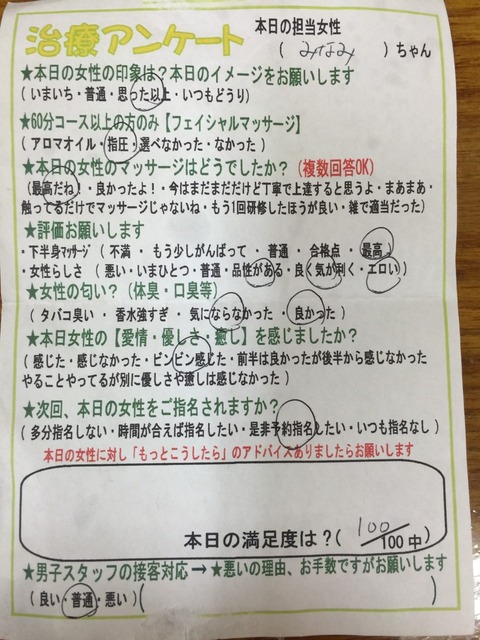 治療アンケート
本日の担当女性
( みなみ )ちゃん
★本日の女性の印象は？本日のイメージをお願いします
( いまいち・普通・思った以上・いつもどうり )
★60分コース以上の方のみ【フェイシャルマッサージ】
( アロマオイル・指圧・選べなかった・なかった )
★本日の女性のマッサージはどうでしたか？(複数回答OK)
(最高だね！・良かったよ！・今はまだまだだけど丁寧で上達すると思うよ・まあまあ・
触ってるだけでマッサージじゃないね・もう1回研修したほうが良い・雑で適当だった)
★評価お願いします
・下半身マッサージ ( 不満 ・ もう少しがんばって ・ 普通 ・ 合格点 ・ 最高 )
・女性らしさ ( 悪い・いまひとつ・普通・品性がある・良く気が利く・エロい )
★女性の匂い？(体臭・口臭等)
( タバコ臭い ・ 香水強すぎ ・ 気にならなかった ・ 良かった )
★本日女性の【愛情・優しさ・癒し】を感じましたか？
( 感じた・感じなかった・ビンビン感じた・前半は良かったが後半から感じなかった
やることやってるが別に優しさや癒しは感じなかった )
★次回、本日の女性をご指名されますか？
( 多分指名しない・時間が合えば指名したい・是非予約指名したい・いつも指名なし )
本日の女性に対し「もっとこうしたら」のアドバイスありましたらお願いします
本日の満足度は？( 100/100中 )
★男子スタッフの接客対応→★悪いの理由、お手数ですがお願いします
( 良い・普通・悪い )( )